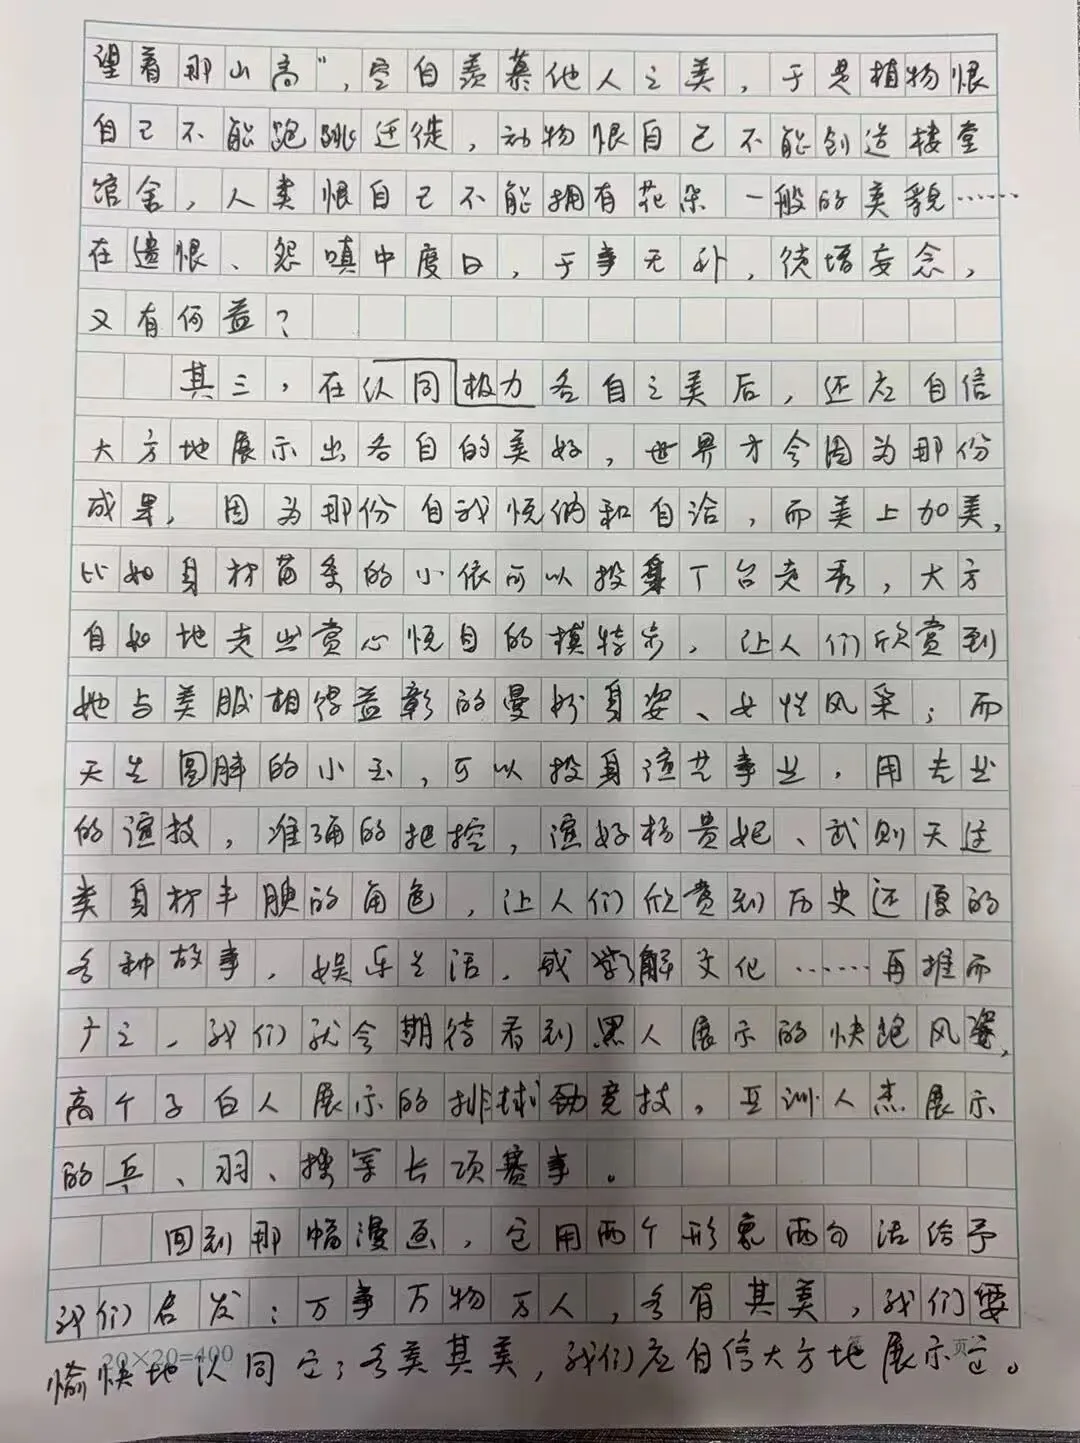 望着那山高",空自羡慕他人之美,于是植物恨
自己不能跑跳迁徙,动物恨自己不能创造楼堂
馆舍,人类恨自己不能拥有花朵一般的美貌……
在遗恨、怨嗔中度日,于事无补,徒增妄念,
又有何益?
其三,在认同极力各自之美后,还应自信
大方地展示出各自的美好,世界才会因为那份
成果,因为那份自我悦纳和自洽,而美上加美,
比如身材苗条的小依可以投身T台走秀,大方
自如地走出赏心悦目的模特步,让人们欣赏到
她与美服相得益彰的曼妙身姿、女性风采;而
天生圆胖的小玉,可以投身演艺事业,用专业
的演技,准确的把控,演好杨贵妃、武则天这
类身材丰腴的角色,让人们欣赏到历史还原的
各种故事,娱乐生活,或学习解文化……再推而
广之,我们就会期待看到黑人展示的快跑风姿,
高个子白人展示的排球劲竞技,亚洲人杰展示
的乒、羽、举长项赛事。
回到那幅漫画,它用两个形象两句话给予
我们启发:万事万物万人,各有其美,我们要
20×20=400 页
愉快地认同它;各美其美,我们应自信大方地展示它。